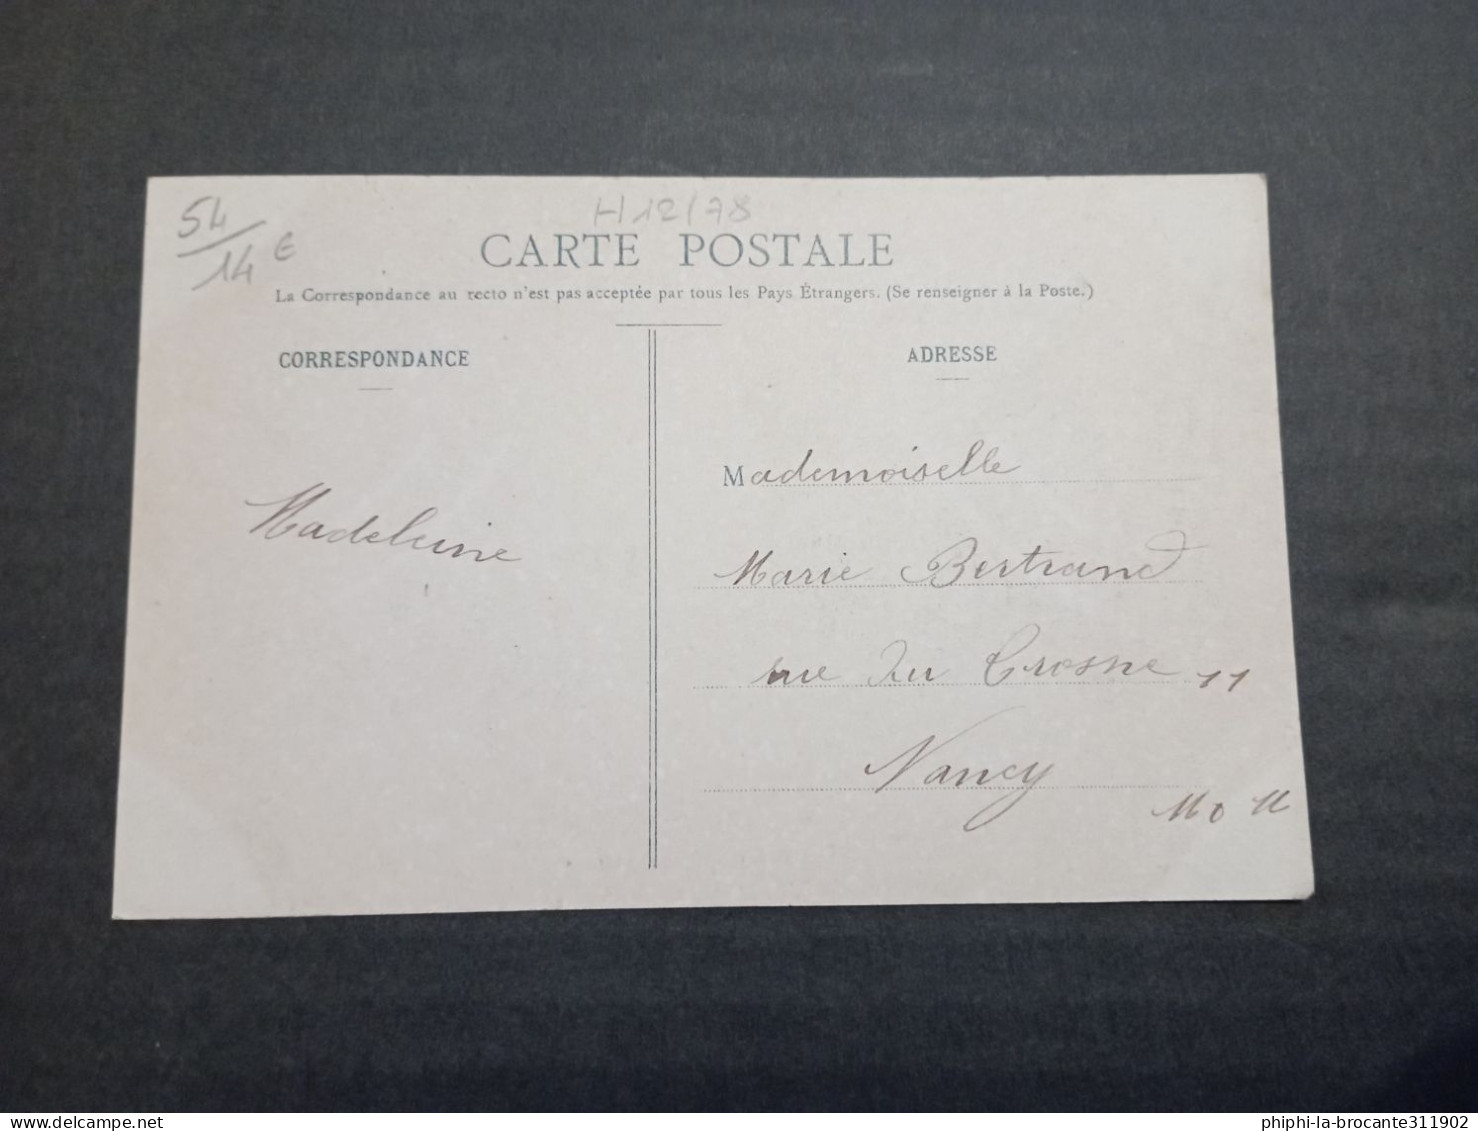 54
14 €
H12/78
CARTE POSTALE
La Correspondance au recto n'est pas acceptée par tous les Pays Étrangers. (Se renseigner à la Poste.)
CORRESPONDANCE
Madeleine
ADRESSE
Mademoiselle
Marie Bertrand
rue du Crosne 11
Nancy
phiphi-la-brocante311902